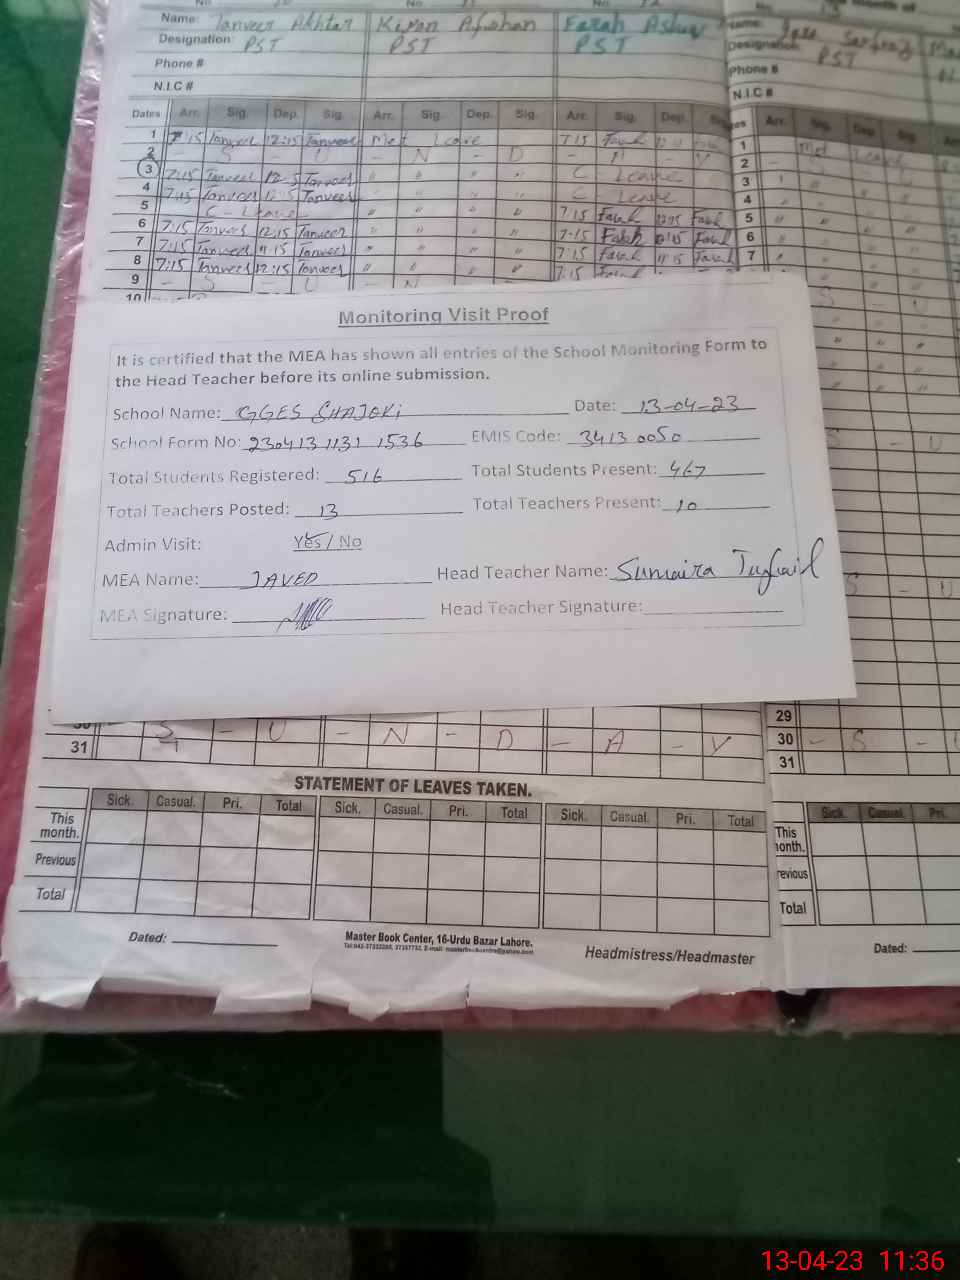 Name: Tanveer Akhtar Kiran Afshan Farah Name:
Designation: PST PST PST Designation: PST
Phone # Phone #
N.I.C # N.I.C #
Dates Arr. Sig. Dep. Sig. Arr. Sig. Dep. Sig. Arr. Sig. Dep. Arr. Sig. Dep. Sig.
1 7:15 Tanveer 12:15 Tanveer Met Leave 7:15 Farah 1 Met Leave
2 - S - U - N - D - A - Y 2
3 7:15 Tanveer Tanveer " " " " C - Leave 3
4 7:15 Tanveer Tanveer " " " " C - Leave 4
5 C - Leave " " " " 7:15 Farah 12:15 Farah 5
6 7:15 Tanveer 12:15 Tanveer " " " " 7-15 Farah 12:15 Farah 6
7 7:15 Tanveer 11:15 Tanveer " " " " 7:15 Farah 11:15 Farah 7
8 7:15 Tanveer 12:15 Tanveer " " " " 7:15 Farah
9 - S - U - N
10
Monitoring Visit Proof
It is certified that the MEA has shown all entries of the School Monitoring Form to
the Head Teacher before its online submission.
School Name: GGES GHAJOKI Date: 13-04-23
School Form No: 230413 1131 1536 EMIS Code: 3413 0050
Total Students Registered: 516 Total Students Present: 467
Total Teachers Posted: 13 Total Teachers Present: 10
Admin Visit: Yes / No
MEA Name: JAVED Head Teacher Name: Sumaira Tufail
MEA Signature: Head Teacher Signature:
29
30 - S - U - N - D - A - Y 30 - S -
31 31
STATEMENT OF LEAVES TAKEN.
Sick. Casual. Pri. Total Sick. Casual. Pri. Total Sick. Casual. Pri. Total Sick. Casual. Pri.
This month. This month.
Previous Previous
Total Total
Dated: Master Book Center, 16-Urdu Bazar Lahore. Headmistress/Headmaster Dated:
13-04-23 11:36